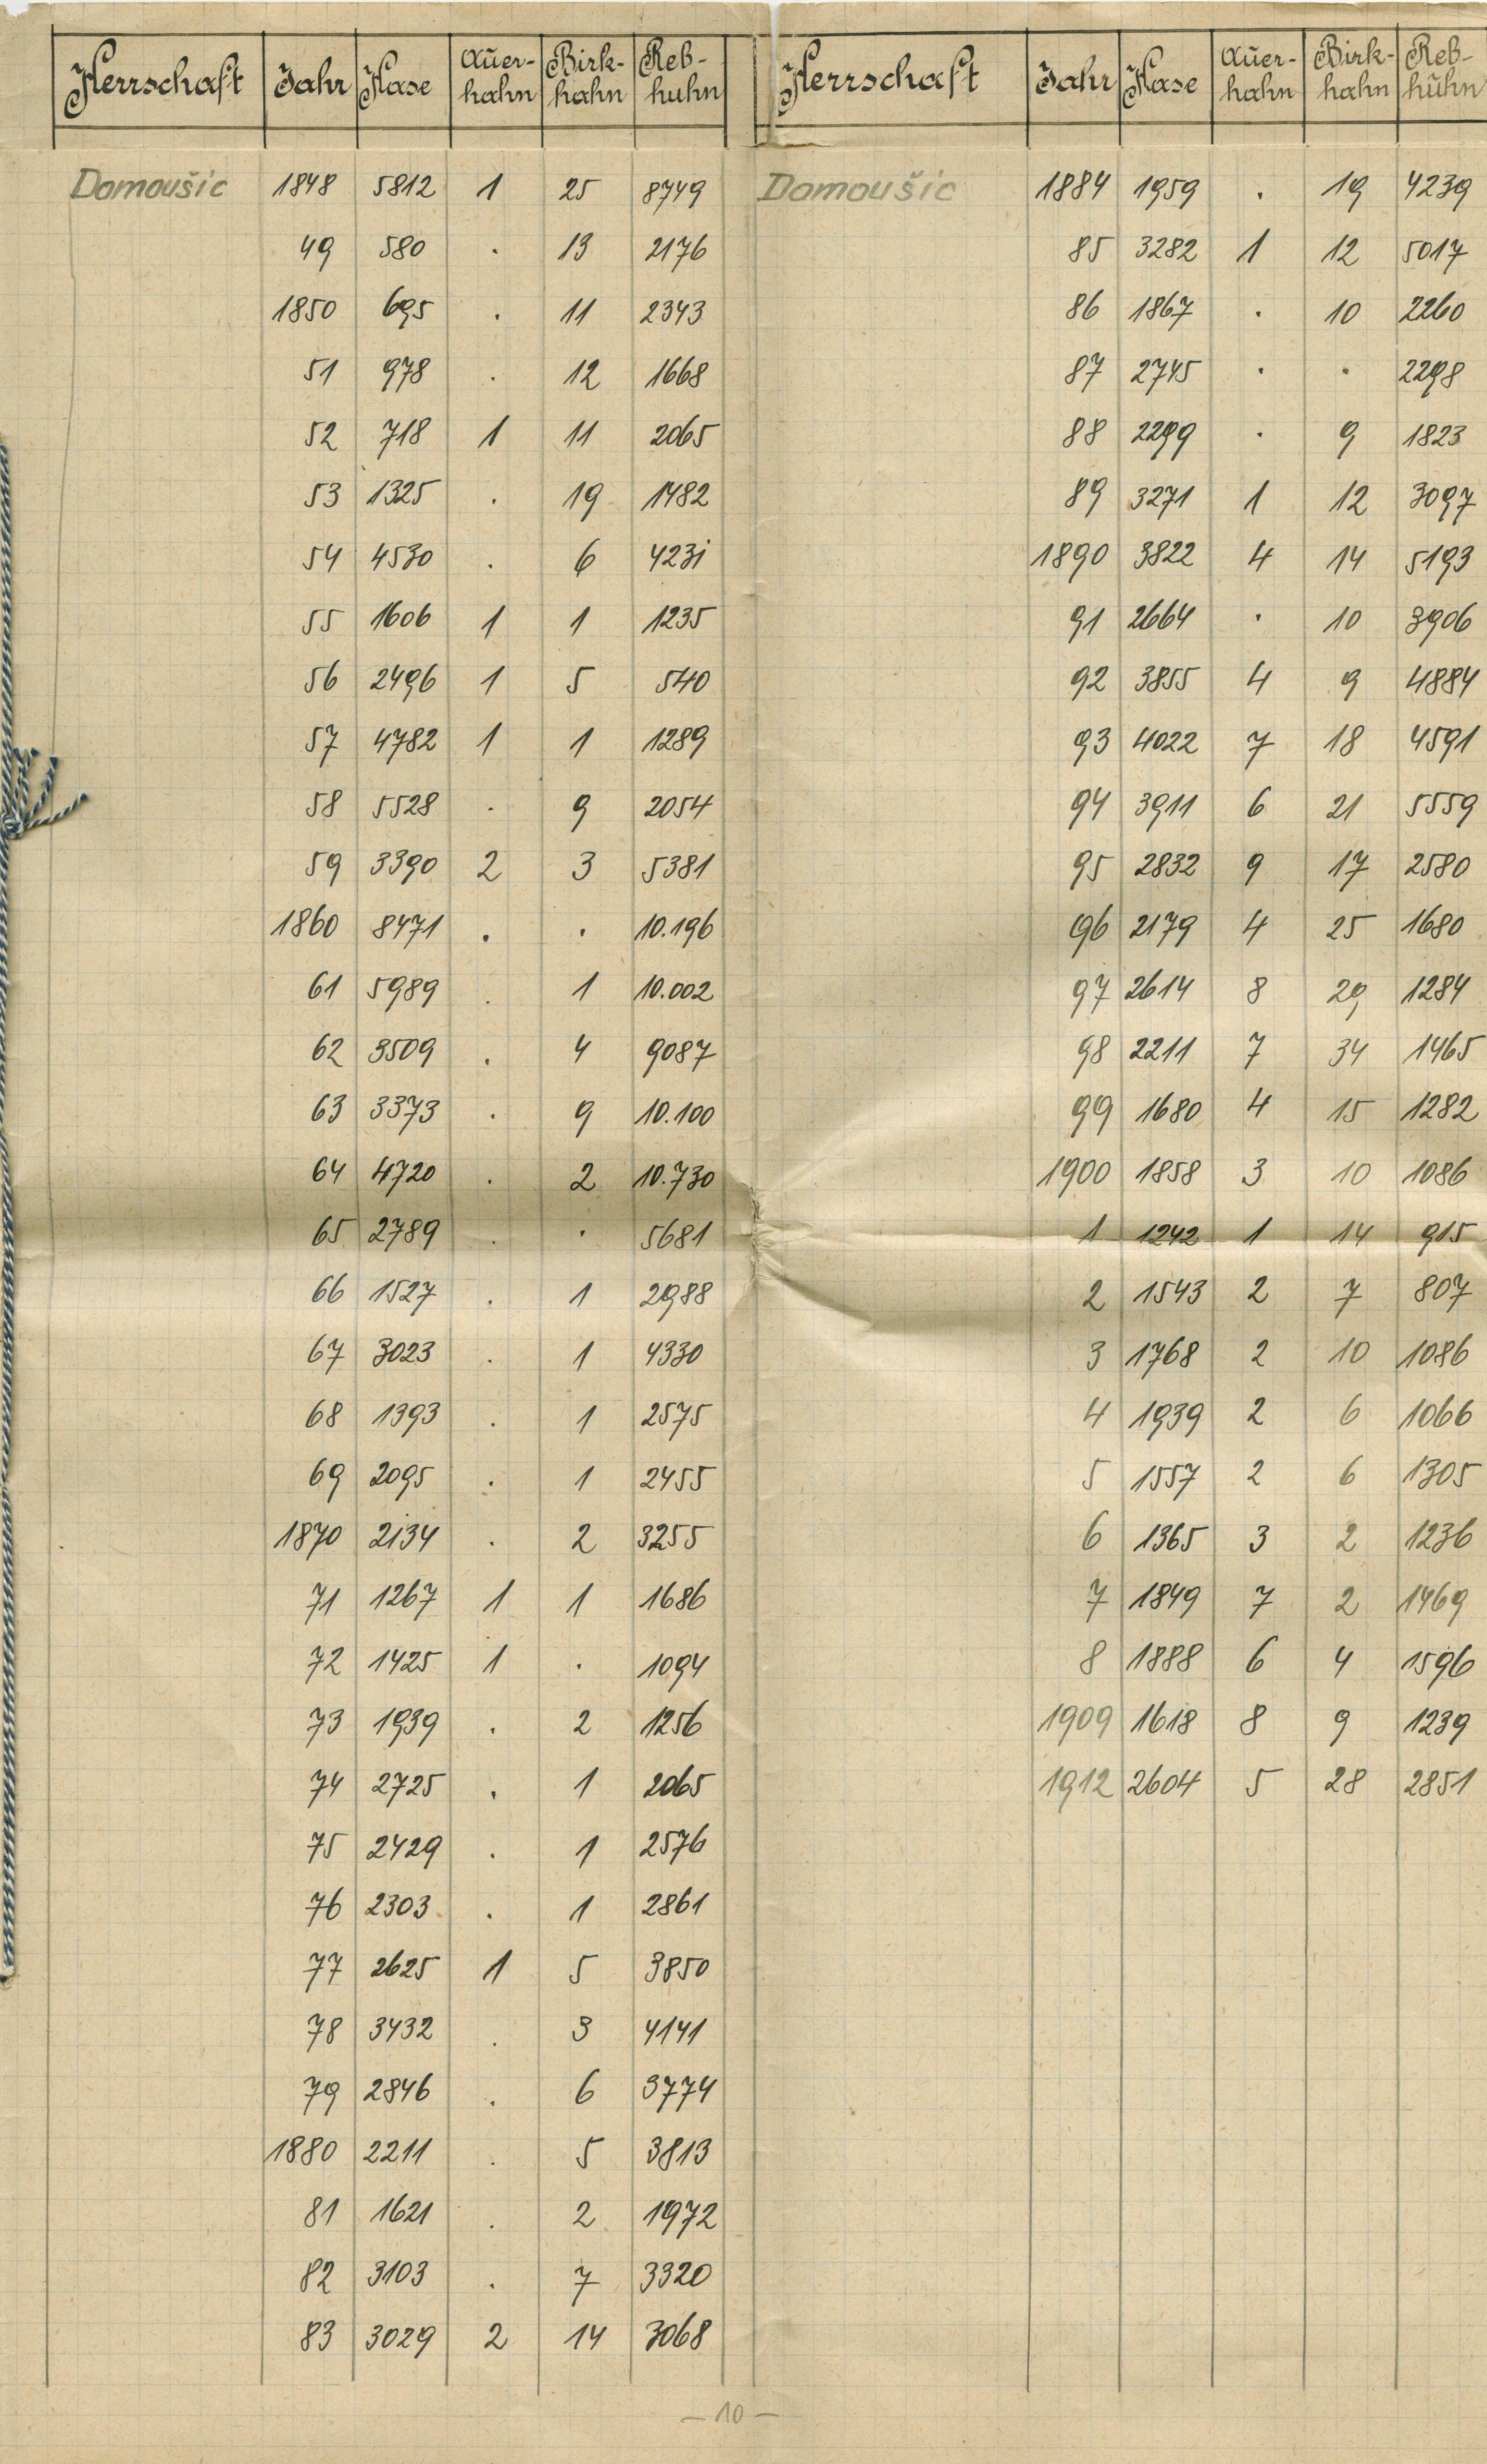 Herrschaft Jahr Hase Auer-hahn Birk-hahn Reb-huhn
Domoušic 1848 5812 1 25 8749
49 580 . 13 2176
1850 695 . 11 2343
51 978 . 12 1668
52 718 1 11 2065
53 1325 . 19 1482
54 4530 . 6 4231
55 1606 1 1 1235
56 2496 1 5 540
57 4782 1 1 1289
58 5528 . 9 2054
59 3390 2 3 5381
1860 8471 . . 10.196
61 5989 . 1 10.002
62 3509 . 4 9087
63 3373 . 9 10.100
64 4720 . 2 10.730
65 2789 . . 5681
66 1527 . 1 2988
67 3023 . 1 4330
68 1393 . 1 2575
69 2095 . 1 2455
1870 2134 . 2 3255
71 1267 1 1 1686
72 1425 1 . 1094
73 1939 . 2 1256
74 2725 . 1 2065
75 2429 . 1 2576
76 2303 . 1 2861
77 2625 1 5 3850
78 3432 . 3 4141
79 2846 . 6 3774
1880 2211 . 5 3813
81 1621 . 2 1972
82 3103 . 7 3320
83 3029 2 14 3068
Herrschaft Jahr Hase Auer-hahn Birk-hahn Reb-huhn
Domoušic 1884 1959 . 19 4239
85 3282 1 12 5017
86 1867 . 10 2260
87 2745 . . 2298
88 2299 . 9 1823
89 3271 1 12 3097
1890 3822 4 14 5193
91 2664 . 10 3906
92 3855 4 9 4884
93 4022 7 18 4591
94 3911 6 21 5559
95 2832 9 17 2580
96 2179 4 25 1680
97 2614 8 29 1284
98 2211 7 34 1465
99 1680 4 15 1282
1900 1858 3 10 1086
1 1242 1 14 915
2 1543 2 7 807
3 1768 2 10 1086
4 1939 2 6 1066
5 1557 2 6 1305
6 1365 3 2 1236
7 1849 7 2 1469
8 1888 6 4 1596
1909 1618 8 9 1239
1912 2604 5 28 2851
– 10 –